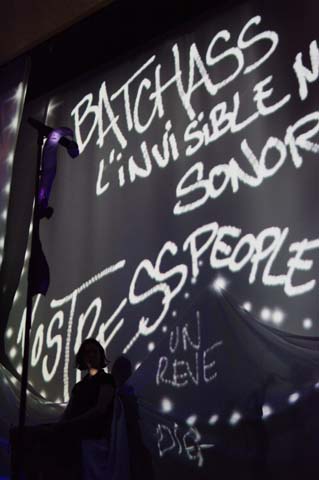 BATCHASS
L'INVISIBLE
SONOR
NOSTRESSPEOPLE
UN
REVE